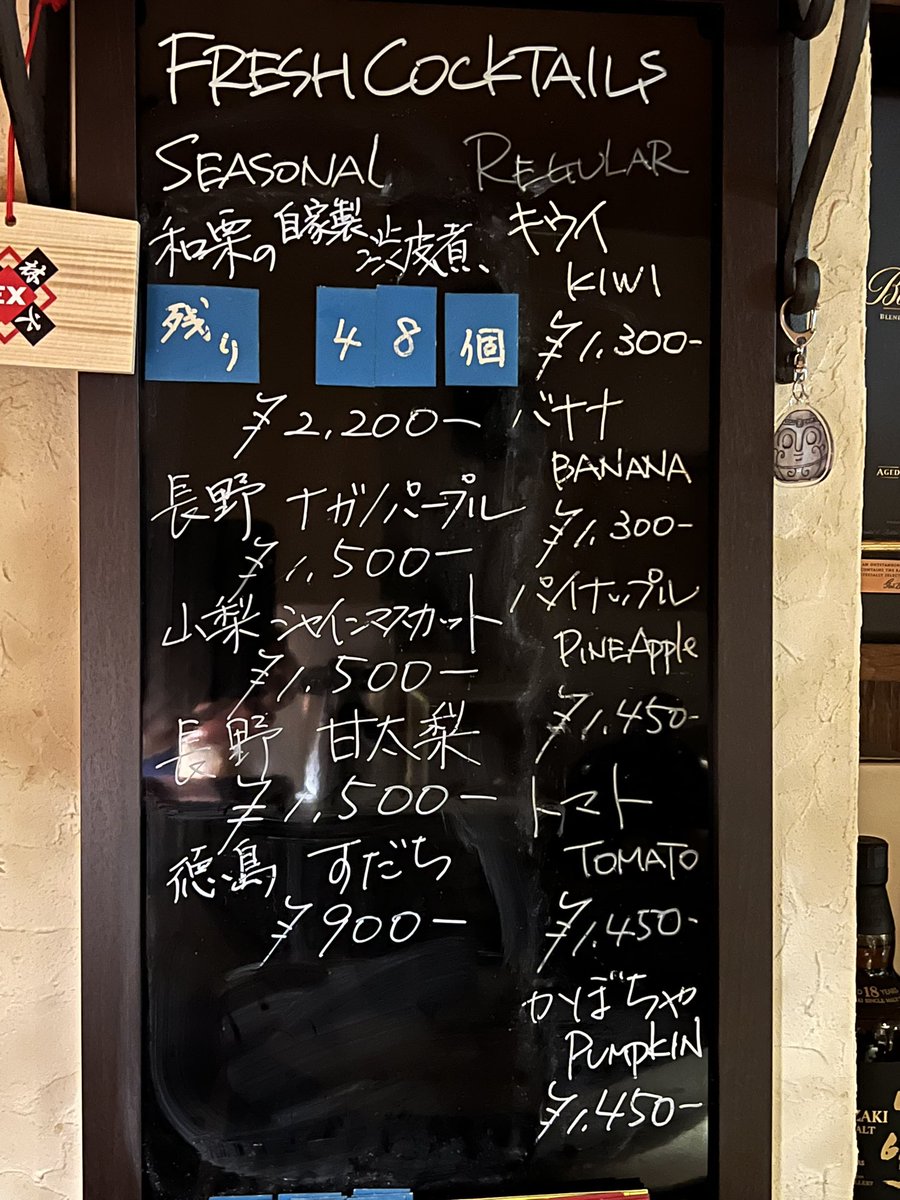 FRESH COCKTAILS
SEASONAL
和栗の自家製渋皮煮、
残り 48個
¥2,200-
長野 ナガノパープル
¥1,500-
山梨 シャインマスカット
¥1,500-
長野 甘太梨
¥1,500-
徳島 すだち
¥900-
REGULAR
キウイ
KIWI
¥1,300-
バナナ
BANANA
¥1,300-
パイナップル
PINEApple
¥1,450-
トマト
TOMATO
¥1,450-
かぼちゃ
PUMPKIN
¥1,450-
EX
BLEN
AGED
18 YEARS
ZAKI
ALT